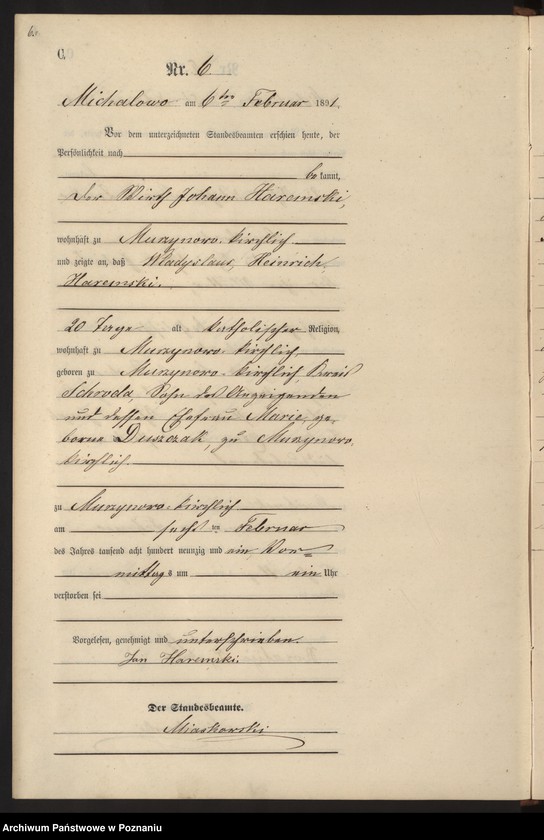 6.
C.
Nr. 6
Michalowo am 6ten Februar 1891.
Vor dem unterzeichneten Standesbeamten erschien heute, der
Persönlichkeit nach
bekannt,
der Wirth Johann Haremski,
wohnhaft zu Murzynowo. kirchlich
und zeigte an, daß Wladyslaus, Heinrich,
Haremski.
20 Tage alt katholischer Religion,
wohnhaft zu Murzynowo. kirchlich,
geboren zu Murzynowo. kirchlich, Kreis
Schroda, Sohn des Anzeigenden
und dessen Ehefrau Marie, ge-
borene Duszczak, zu Murzynowo.
kirchlich.
zu Murzynowo. kirchlich
am sechsten Februar
des Jahres tausend acht hundert neunzig und ein, Vor=
mittags um ein Uhr
verstorben sei
Vorgelesen, genehmigt und unterschrieben.
Jan Haremski.
Der Standesbeamte.
Miaskowski
Archiwum Państwowe w Poznaniu